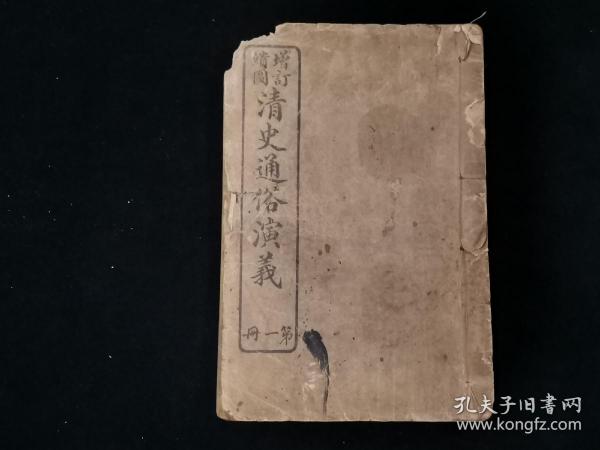 增訂
繪圖
清史通俗演義
第一冊
孔夫子旧書网
www.kongfz.com